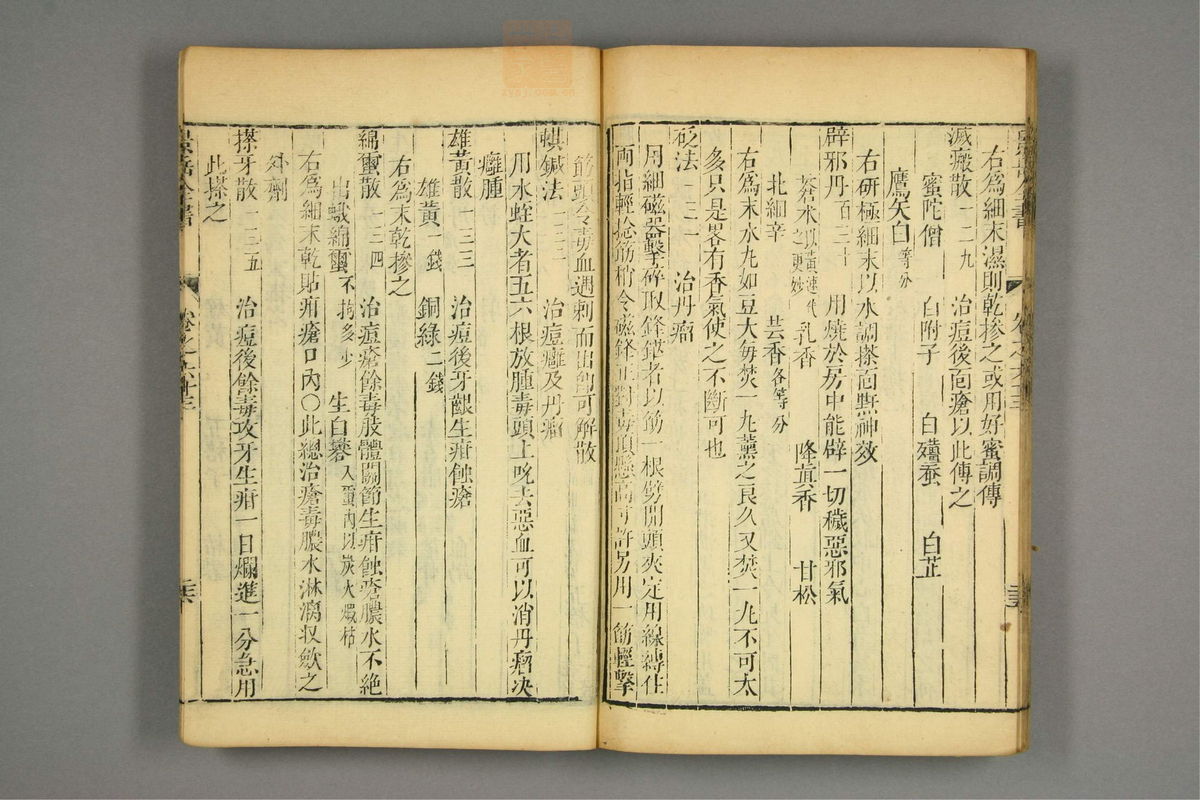 右爲細末濕則乾摻之或用好蜜調傅
滅瘢散一二九 治痘後面瘡以此傅之
蜜陀僧 白附子 白殭蚕 白芷
鷹矢白等分
右研極細末以水調搽面㸃神效
辟邪丹百三十 用燒於房中能辟一切穢惡邪氣
蒼术以黃連代之更妙 乳香 降眞香 甘松
北細辛 芸香各等分
右爲末水丸如豆大每焚一丸薰之良久又焚一丸不可太
多只是畧有香氣使之不斷可也
砭法一三一 治丹瘤
用細磁器擊碎取鋒鋩者以筯一根劈開頭夾定用線縛住
兩指輕捻筯梢令磁鋒正對毒頂懸高寸許另用一筯輕擊
筯頭令毒血遇刺而出卽可解散
蜞鍼法一三二 治痘癰及丹瘤
癰腫
用水蛭大者五六根放腫毒頭上吮去惡血可以消丹瘤决
雄黃散一三三 治痘後牙齦生疳蝕瘡
雄黃一錢 銅綠二錢
右爲末乾摻之
綿蠒散一三四 治痘瘡餘毒肢體關節生疳蝕瘡膿水不絶
出蛾綿蠒不拘多少 生白礬入蠒內以炭火煅枯
右爲細末乾貼疳瘡口內○此總治瘡毒膿水淋漓収歛之
外劑
搽牙散一三五 治痘後餘毒攻牙生疳一日爛進一分急用
此搽之
景岳全書 卷之六十三